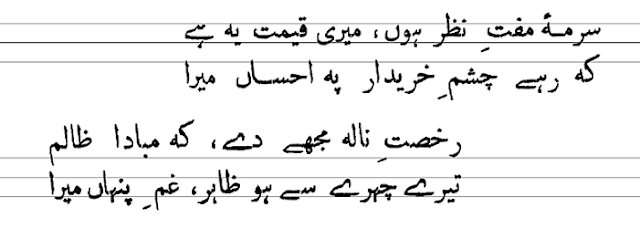 سرمۂ مفتِ نظر ہوں، میری قیمت یہ ہے
کہ رہے چشمِ خریدار پہ احساں میرا
رخصتِ نالہ مجھے دے، کہ مبادا ظالم
تیرے چہرے سے ہو ظاہر، غمِ پنہاں میرا